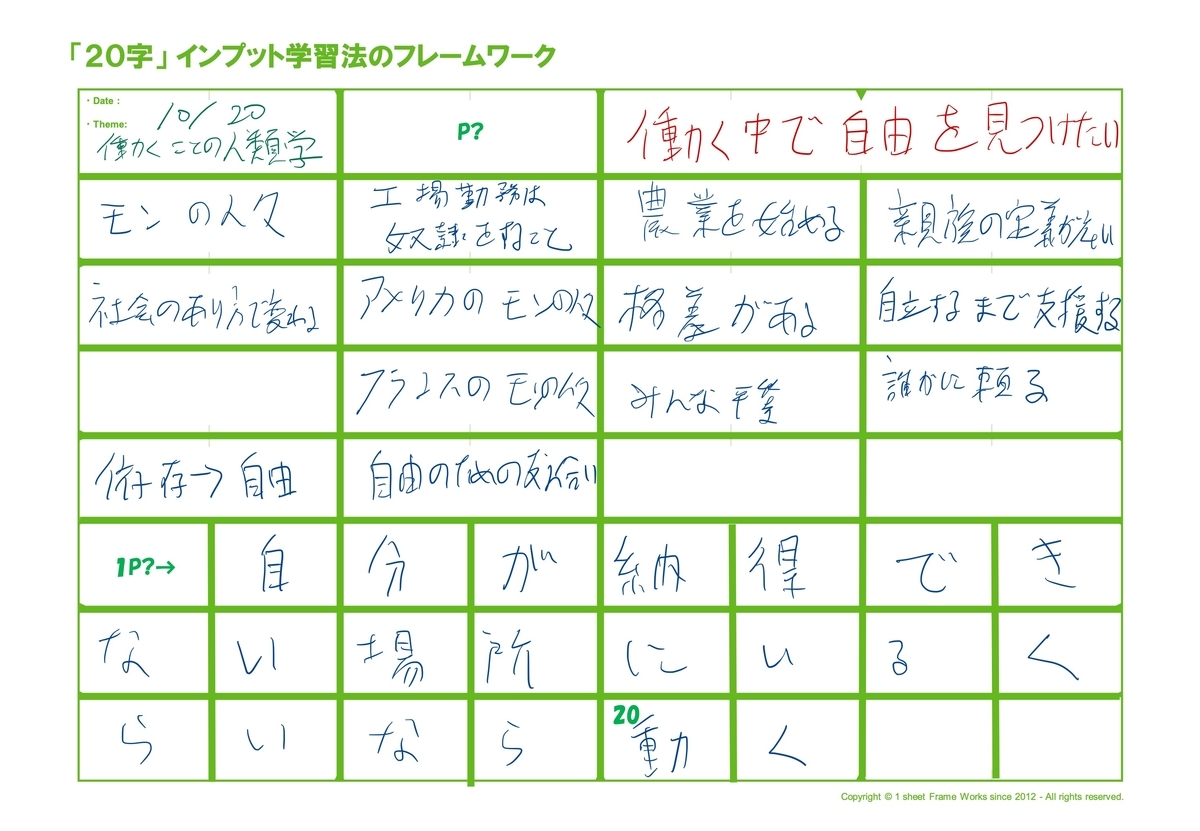 「20字」インプット学習法のフレームワーク
・Date :
10/20
・Theme:
働くことの人類学
P?
働く中で自由を見つけたい
モンの人々
工場勤務は
奴隷を育てこと
農業を始める
親族の定義が広い
社会のあり方で変わる
アメリカのモンの人々
格差がある
自立するまで支援する
フランスのモンの人々
みんな平等
誰かに頼る
依存→自由
自由のための支え合い
1P?→ 自 分 が 納 得 で き
な い 場 所 に い る く
ら い な ら 20 動 く
Copyright © 1 sheet Frame Works since 2012 - All rights reserved.